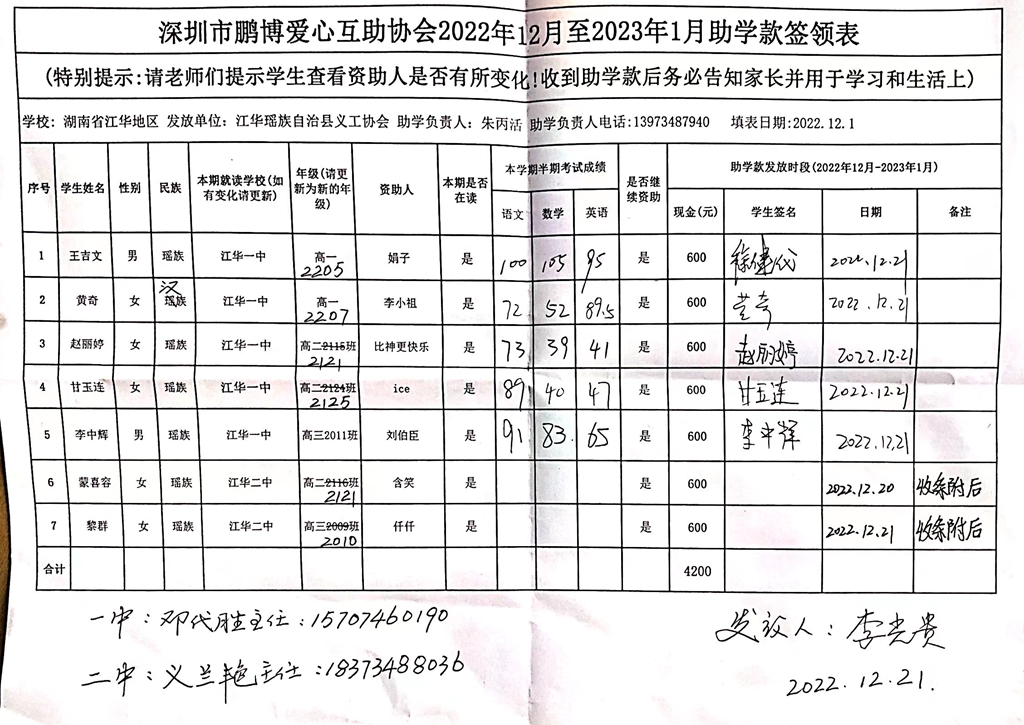 深圳市鹏博爱心互助协会2022年12月至2023年1月助学款签领表
(特别提示:请老师们提示学生查看资助人是否有所变化!收到助学款后务必告知家长并用于学习和生活上)
学校: 湖南省江华地区 发放单位: 江华瑶族自治县义工协会 助学负责人: 朱丙活 助学负责人电话:13973487940 填表日期:2022.12.1
序号 学生姓名 性别 民族 本期就读学校(如有变化请更新) 年级(请更新为新的年级) 资助人 本期是否在读 本学期半期考试成绩 是否继续资助 助学款发放时段(2022年12月-2023年1月)
语文 数学 英语 现金(元) 学生签名 日期 备注
1 王吉文 男 瑶族 江华一中 高一 2205 娟子 是 100 105 95 是 600 2022.12.21
2 黄奇 女 瑶族 汉 江华一中 高一 2207 李小祖 是 72 52 89.5 是 600 黄奇 2022.12.21
3 赵丽婷 女 瑶族 江华一中 高二2115班 2121 比神更快乐 是 73 39 41 是 600 赵丽婷 2022.12.21
4 甘玉连 女 瑶族 江华一中 高二2124班 2125 ice 是 89 40 47 是 600 甘玉连 2022.12.21
5 李中辉 男 瑶族 江华一中 高三2011班 刘伯臣 是 91 83. 65 是 600 李中辉 2022.12.21
6 蒙喜容 女 瑶族 江华二中 高二2116班 2121 含笑 是 是 600 2022.12.20 收条附后
7 黎群 女 瑶族 江华二中 高三2009班 2010 仟仟 是 是 600 2022.12.21 收条附后
合计 4200
一中: 邓代胜主任: 15707460190
二中: 义兰艳主任: 18373488036
发放人: 李光贵
2022.12.21.